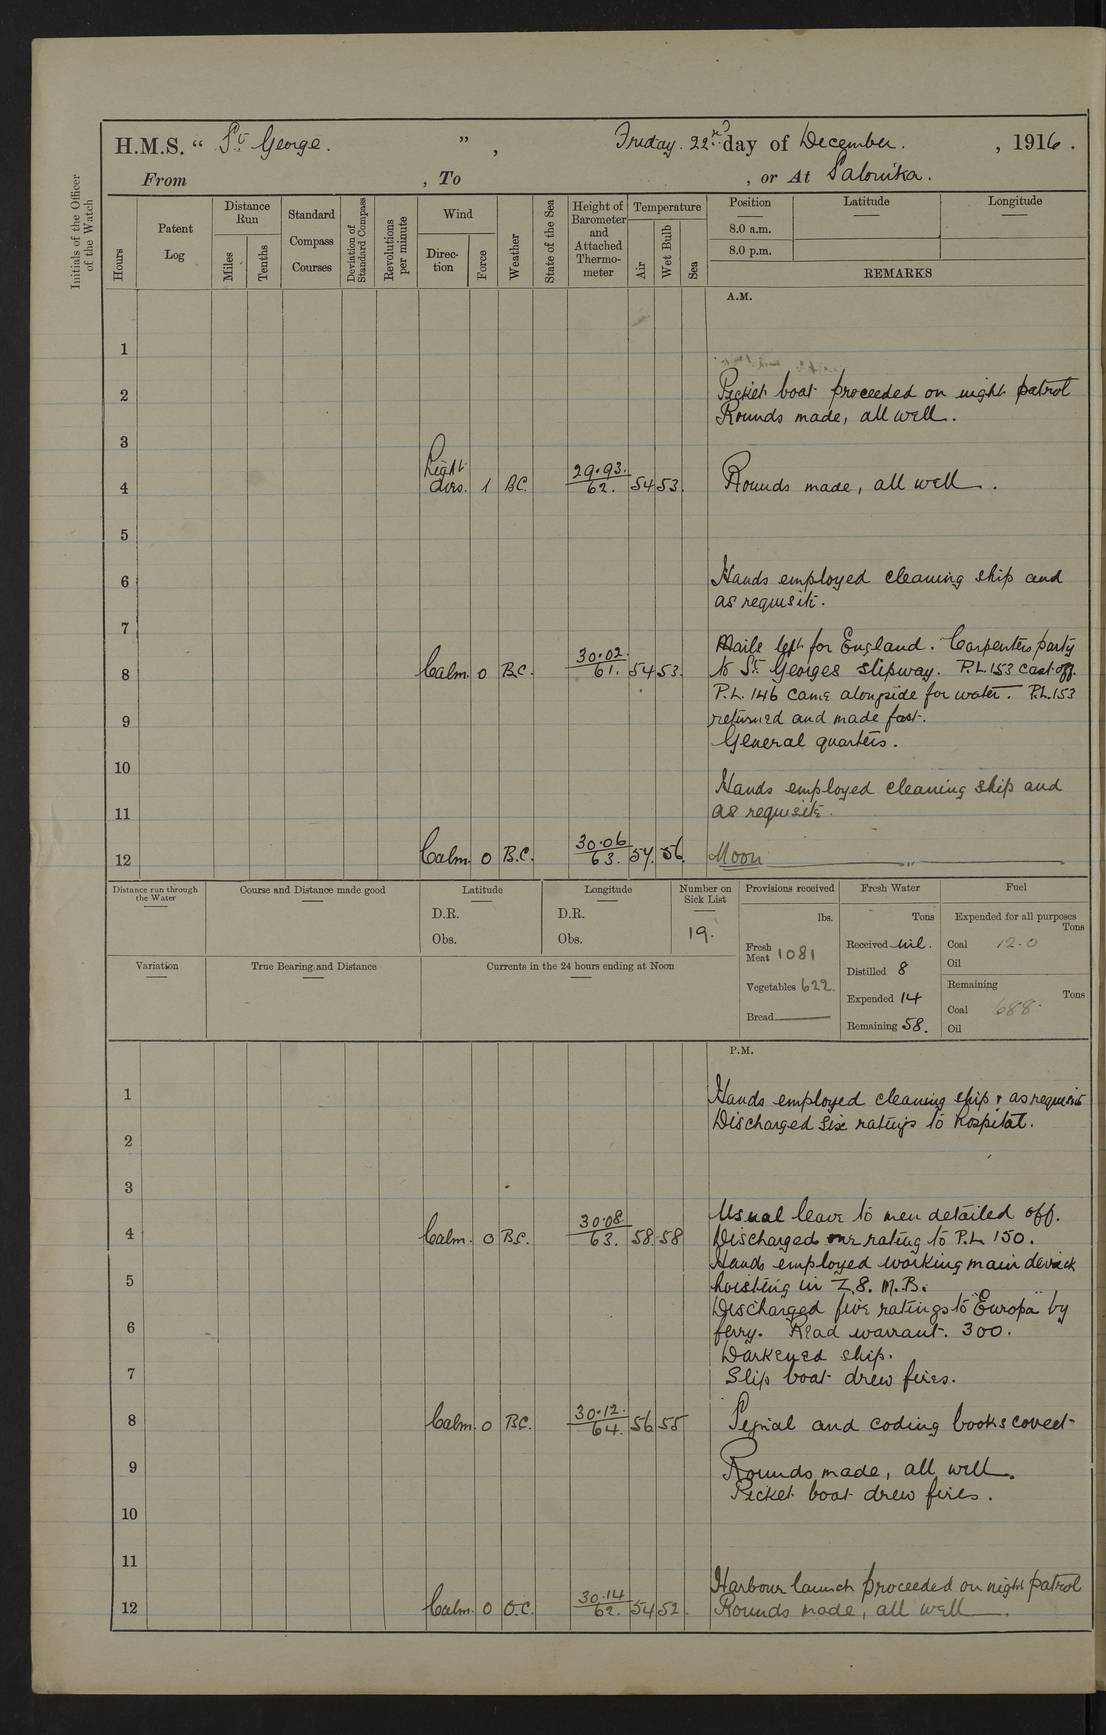 H.M.S. “ St George. ” , Friday. 22nd day of December. , 1916.
From , To , or At Salonika.
Initials of the Officer of the Watch
Hours
Patent Log
Distance Run
Miles
Tenths
Standard Compass Courses
Deviation of Standard Compass
Revolutions per minute
Wind
Direction
Force
Weather
State of the Sea
Height of Barometer and Attached Thermometer
Temperature
Air
Wet Bulb
Sea
Position
8.0 a.m.
8.0 p.m.
Latitude
Longitude
REMARKS
A.M.
1
2 Picket boat proceeded on night patrol
Rounds made, all well.
3
4 Light airs. 1 B.C. 29.93. 62. 54 53. Rounds made, all well.
5
6 Hands employed cleaning ship and
as requisite.
7 Mails left for England. Carpenters party
8 Calm. 0 B.C. 30.02. 61. 54 53. to St Georges slipway. P.L. 153 cast off.
P.L. 146 came alongside for water. P.L. 153
9 returned and made fast.
General quarters.
10
Hands employed cleaning ship and
11 as requisite.
12 Calm. 0 B.C. 30.06 63. 57. 56. Noon ,,
Distance run through the Water
Course and Distance made good
Latitude
D.R.
Obs.
Longitude
D.R.
Obs.
Number on Sick List
19.
Provisions received
lbs.
Fresh Meat 1081
Vegetables 622.
Bread
Fresh Water
Tons
Received nil.
Distilled 8
Expended 14
Remaining 58.
Fuel
Expended for all purposes
Tons
Coal 12.0
Oil
Remaining
Tons
Coal 688.
Oil
Variation
True Bearing and Distance
Currents in the 24 hours ending at Noon
P.M.
1 Hands employed cleaning ship & as requisite
Discharged six ratings to hospital.
2
3
Usual leave to men detailed off.
4 Calm. 0 B.C. 30.08 63. 58. 58 Discharged one rating to P.L 150.
Hands employed working main derrick
5 hoisting in Z.8. M.B.
Discharged five ratings to "Europa" by
6 ferry. Read warrant. 300.
Darkened ship.
7 Slip boat drew fires.
8 Calm. 0 B.C. 30.12. 64. 56 55 Signal and coding books correct
9 Rounds made, all well.
Picket boat drew fires.
10
11
Harbour launch proceeded on night patrol
12 Calm. 0 O.C. 30.14 62. 54 52. Rounds made, all well.